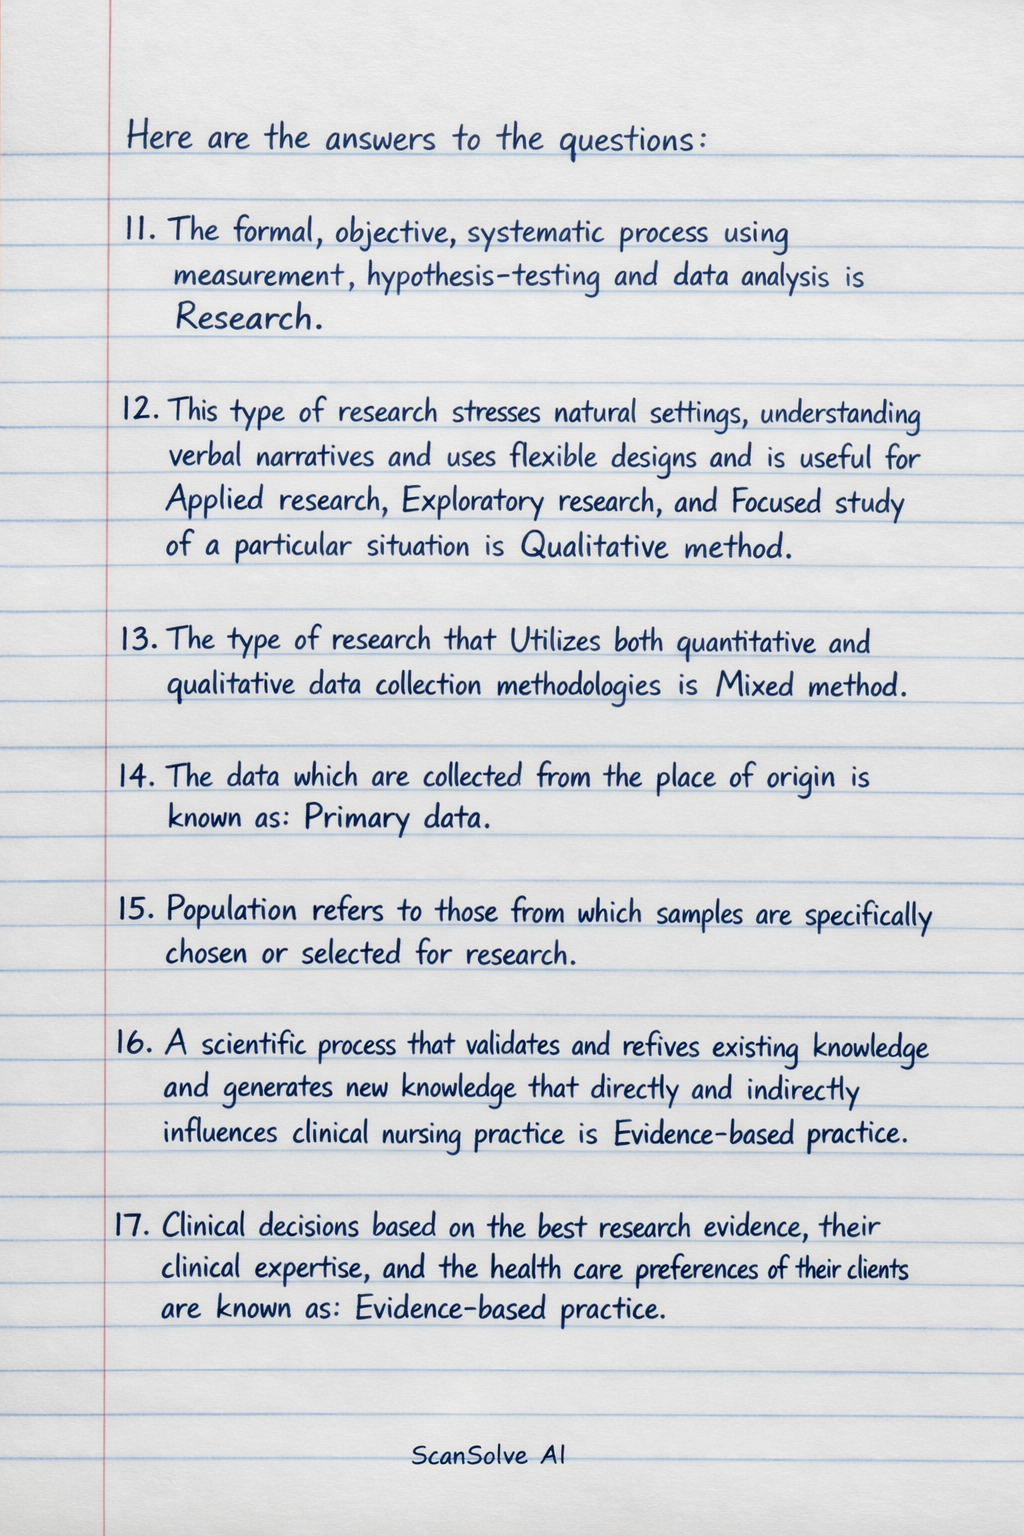 Here are the answers to the questions:
11. The formal, objective, systematic process using
measurement, hypothesis-testing and data analysis is
Research.
12. This type of research stresses natural settings, understanding
verbal narratives and uses flexible designs and is useful for
Applied research, Exploratory research, and Focused study
of a particular situation is Qualitative method.
13. The type of research that Utilizes both quantitative and
qualitative data collection methodologies is Mixed method.
14. The data which are collected from the place of origin is
known as: Primary data.
15. Population refers to those from which samples are specifically
chosen or selected for research.
16. A scientific process that validates and refives existing knowledge
and generates new knowledge that directly and indirectly
influences clinical nursing practice is Evidence-based practice.
17. Clinical decisions based on the best research evidence, their
clinical expertise, and the health care preferences of their clients
are known as: Evidence-based practice.
ScanSolve AI